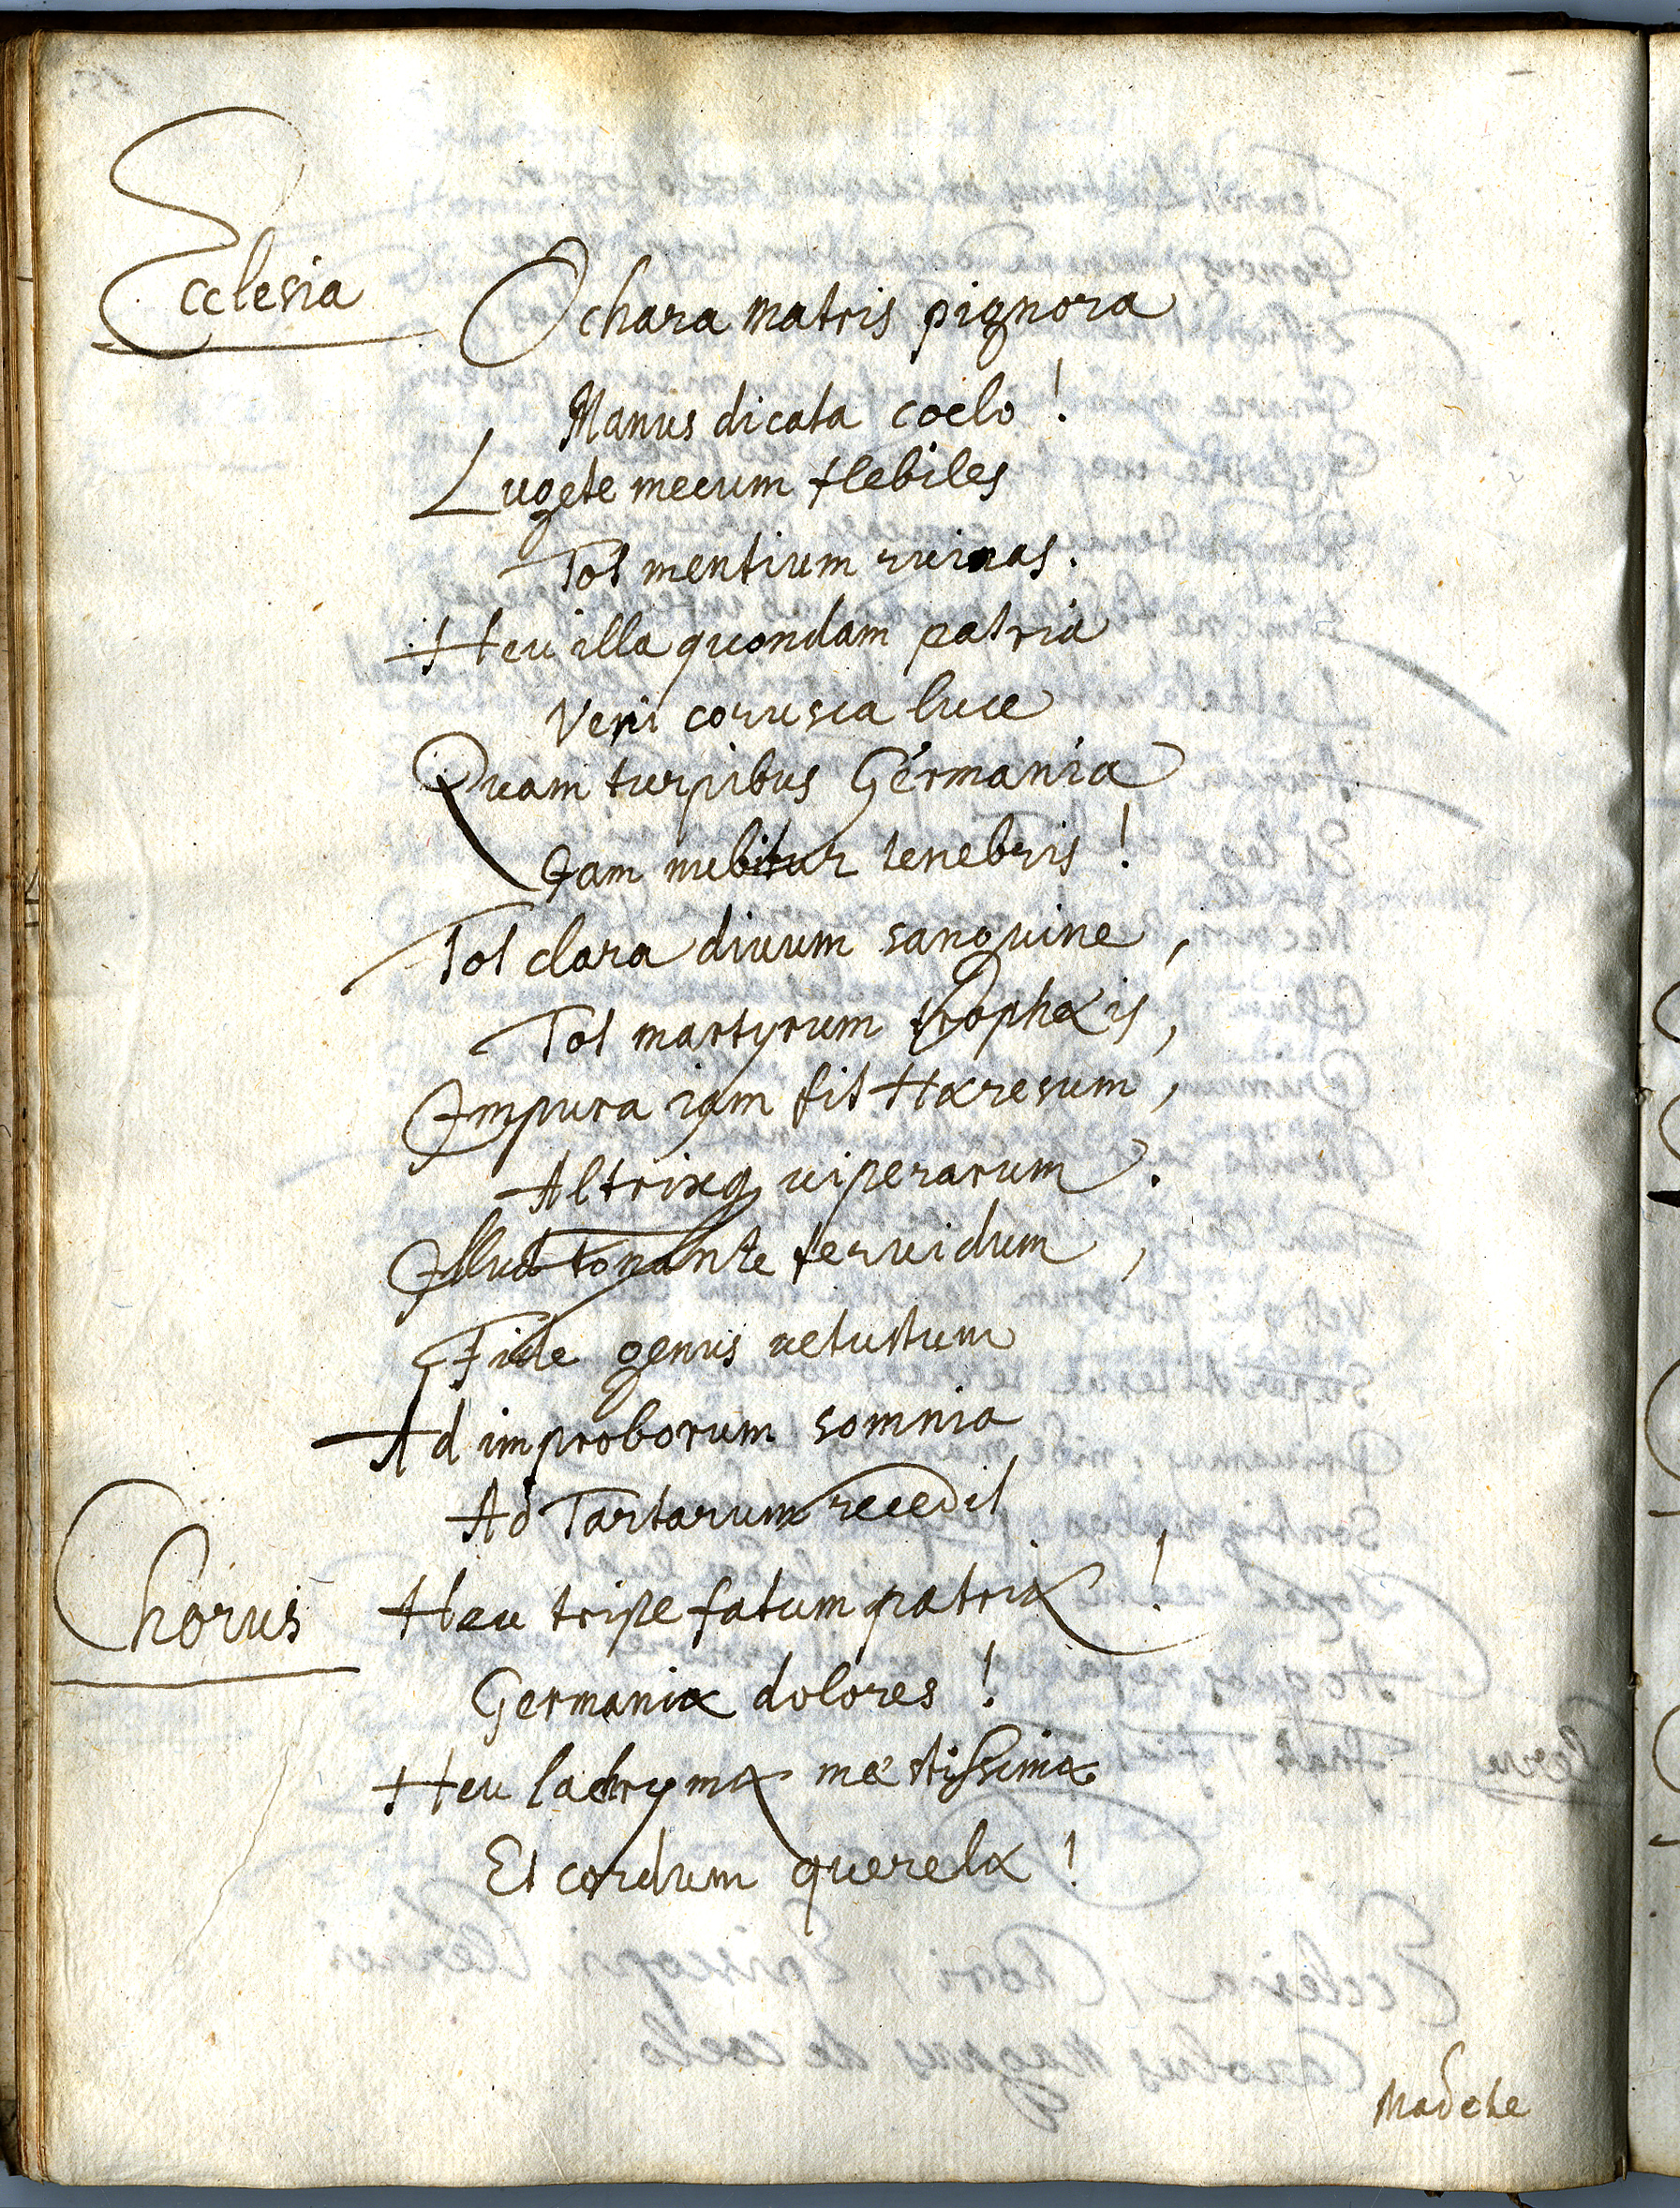 Ecclesia
O chara matris pignora
Manus dicata coelo!
Lugete mecum flebiles
Tot mentium ruinas.
Heu illa quondam patria
Veri corusca luce
Quam turpibus Germania
Jam nubitur tenebris!
Tot clara diuum sanguine,
Tot martyrum trophæis,
Impura iam fit Hæresum,
Altrixq uiperarum.
Illud tonante feruidum,
Fide genus uetustum
Ad improborum somnia
Ad Tartarum recedit
Chorus
Heu triste fatum patriæ!
Germaniæ dolores!
Heu lachrymæ mæstissimæ
Et cordium querelæ!
Madete